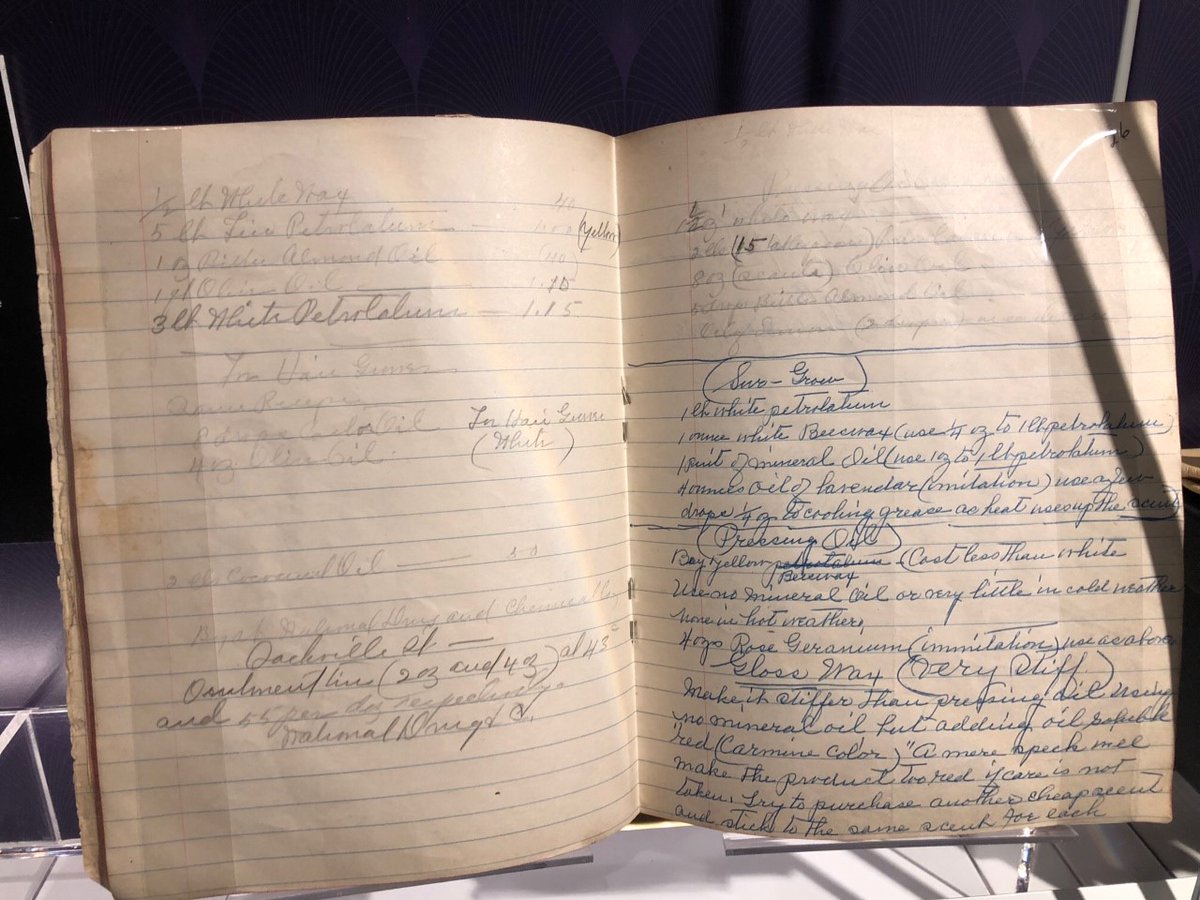 1/2 lb White Wax 40
5 lb Fine Petrolatum — 1.00 (Yellow)
1 oz Bitter Almond Oil (40)
1 pt Olive Oil — 1.15
3 lb White Petrolatum — 1.15
For Hair Grower
8 drops Oil
4 oz Olive Oil
For Hair Grower
(White)
2 lbs Cocoanut Oil — 50
National Drug and Chemical Co,
Sackville St
Ointment tins (2 oz and 4 oz) at 43
and 55 per doz respectively.
National Drug & C.
6
1/2 lb White Wax
Pressing Oil
1/2 oz white wax
2 lbs (15
8 oz (scant) Olive Oil
Bitter Almond Oil
(2 drops)
(Sur-Grow)
1 lb white petrolatum
1 ounce white Beeswax (use 1/4 oz to 1 lb petrolatum)
1 pint of mineral Oil (use 1 oz to 1 lb petrolatum)
4 ounces oil of lavendar (imitation) use a few
drops 1/4 oz to cooling grease as heat uses up the scent
(Pressing Oil)
Buy yellow (Cost less than white
Beeswax
Use no mineral oil or very little in cold weather
none in hot weather,
4 ozs Rose Geranium (immitation) use as above
Gloss Wax (Very Stiff)
Make it stiffer than pressing oil using
no mineral oil but adding oil soluble
"red (Carmine color)" A mere speck will
make the product too red if care is not
taken. Try to purchase another cheap scent
and stick to the same scent for each